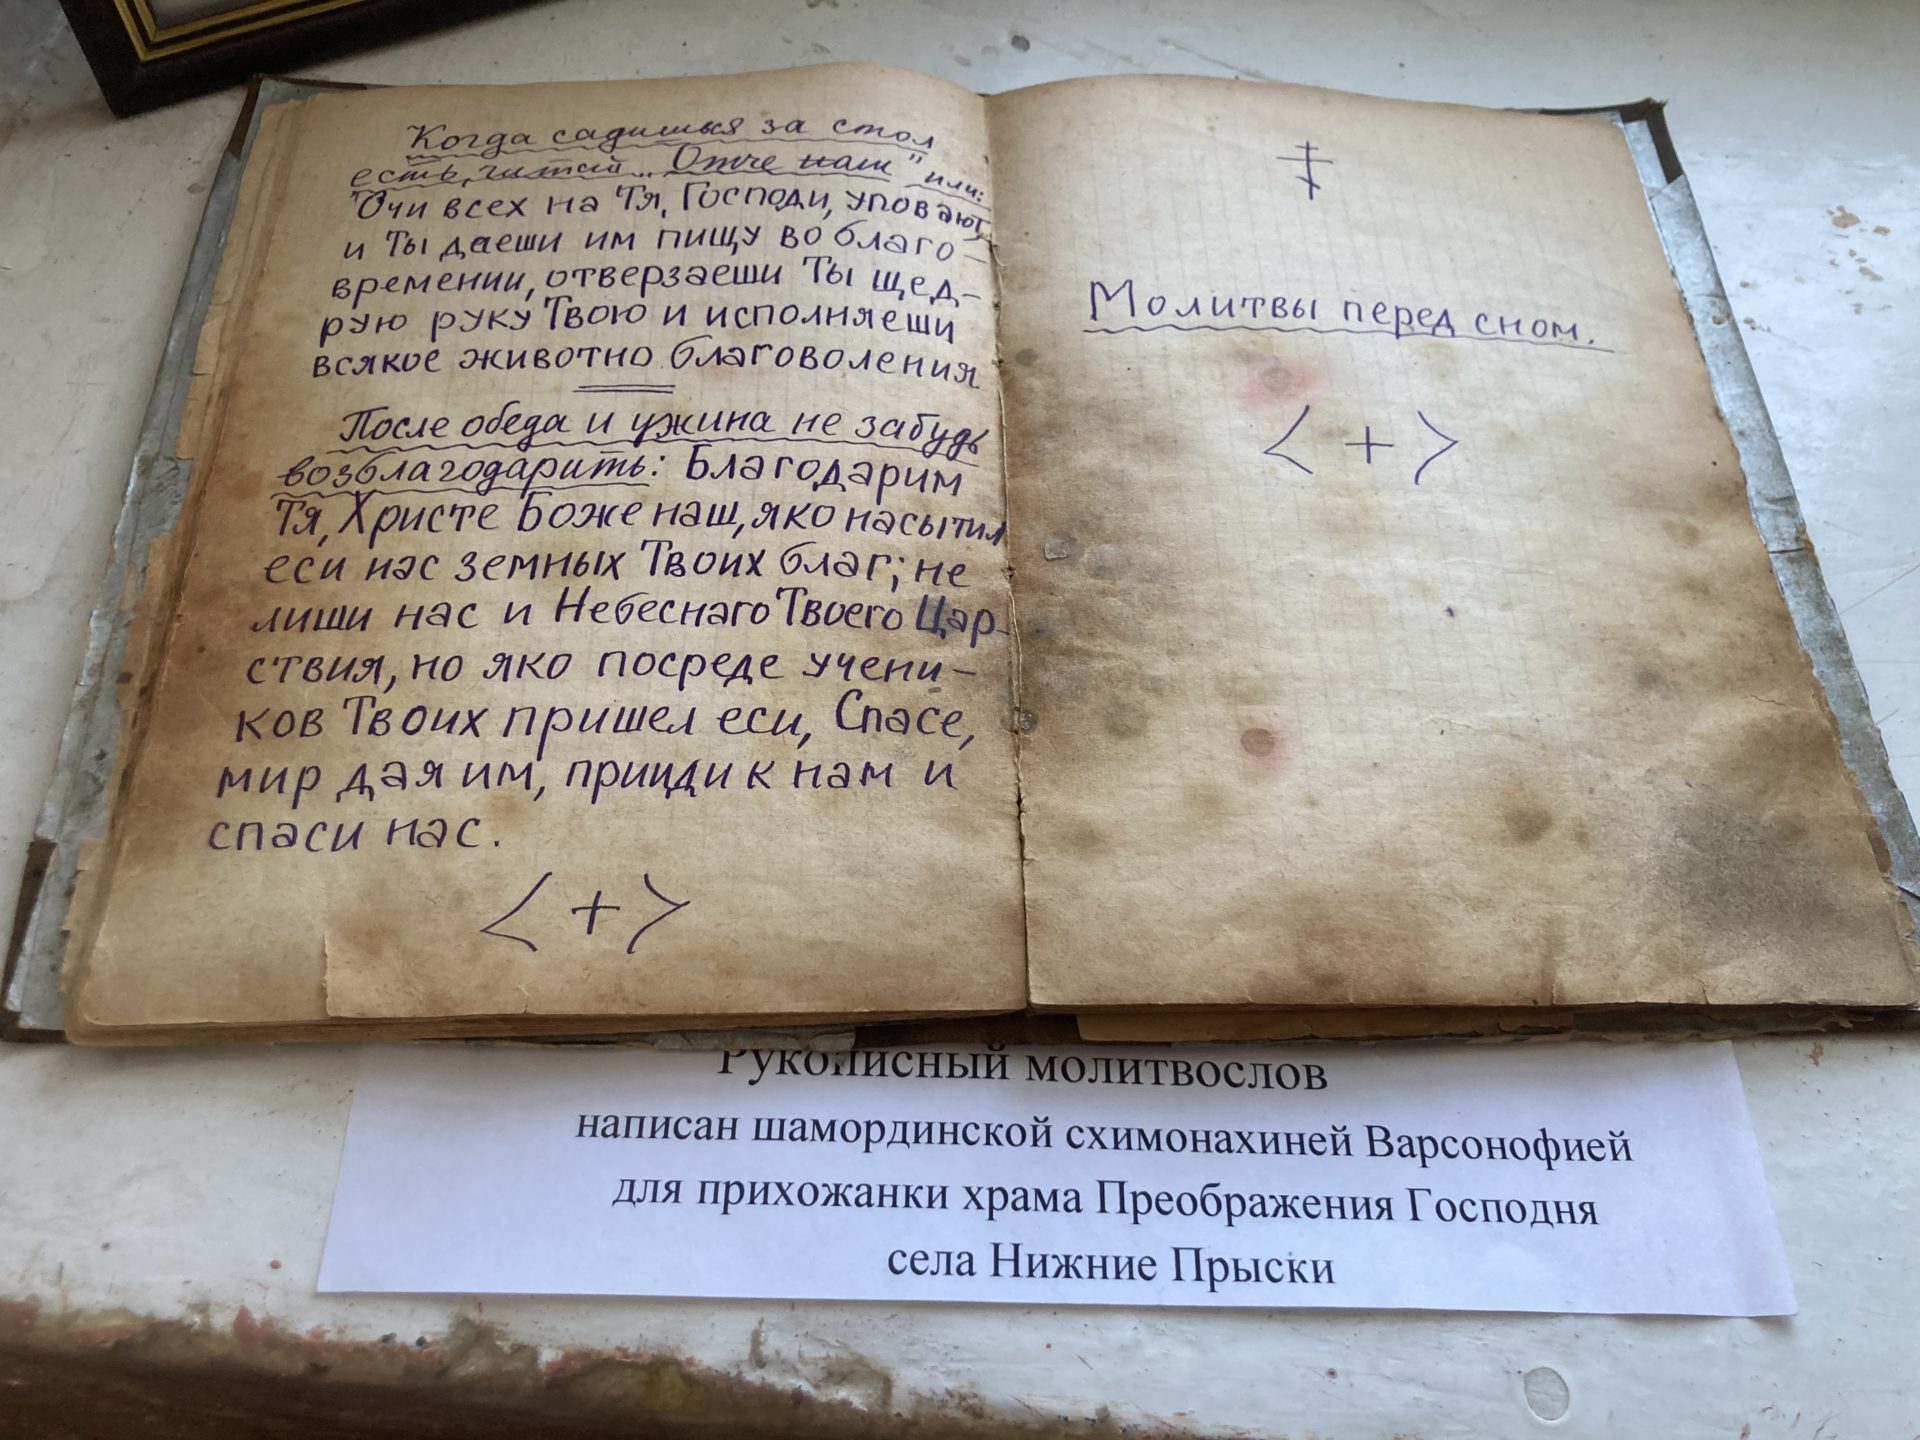 Когда садишься за стол
есть, читай „Отче наш" или:
"Очи всех на Тя, Господи, уповают,
и Ты даеши им пищу во благо-
времении, отверзаеши Ты щед-
рую руку Твою и исполняеши
всякое животно благоволения
После обеда и ужина не забудь
возблагодарить: Благодарим
Тя, Христе Боже наш, яко насытил
еси нас земных Твоих благ; не
лиши нас и Небеснаго Твоего Цар-
ствия, но яко посреде учени-
ков Твоих пришел еси, Спасе,
мир дая им, прииди к нам и
спаси нас.
< + >
☦
Молитвы перед сном.
< + >
Рукописный молитвослов
написан шамординской схимонахиней Варсонофией
для прихожанки храма Преображения Господня
села Нижние Прыски